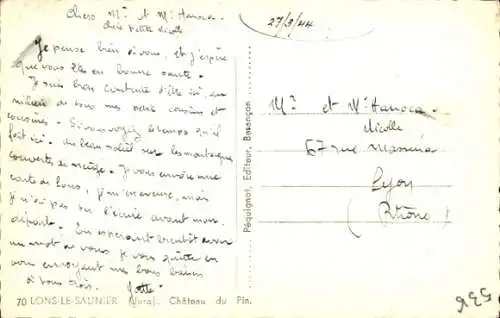 Chers Mme et Mr Hanoca
chère petite Nicolle
27/3/44
Je pense bien à vous, et j'espère
que vous êtes en bonne santé.
Je suis bien contente d'être ici, au
milieu de tous mes petits cousins et
cousines. Si vous voyez le temps qu'il
fait ici. du beau soleil sur les montagnes
couvertes de neige. Je vous envoie une
carte de Lons, mais
je n'ai pas pu l'écrire avant mon
départ. En espérant bientôt avoir
un mot de vous je vous quitte en
vous envoyant mes bons baisers
à vous trois. Yvette
70 LONS-LE-SAUNIER (Jura). Château du Pin.
Péquignot, Editeur, Besançon
Mme et Mr Hanoca
Nicolle
67 rue Masséna
Lyon
(Rhône)
536